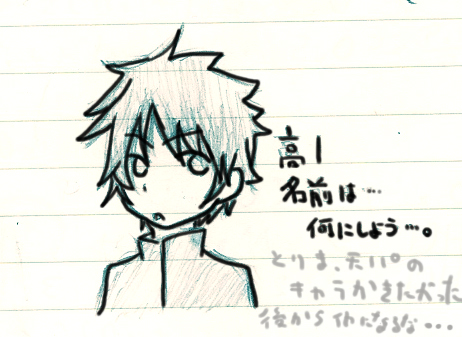 高1
名前は…
何にしよう…。
とりま、天パの
キャラかきたかった
後から になるな…